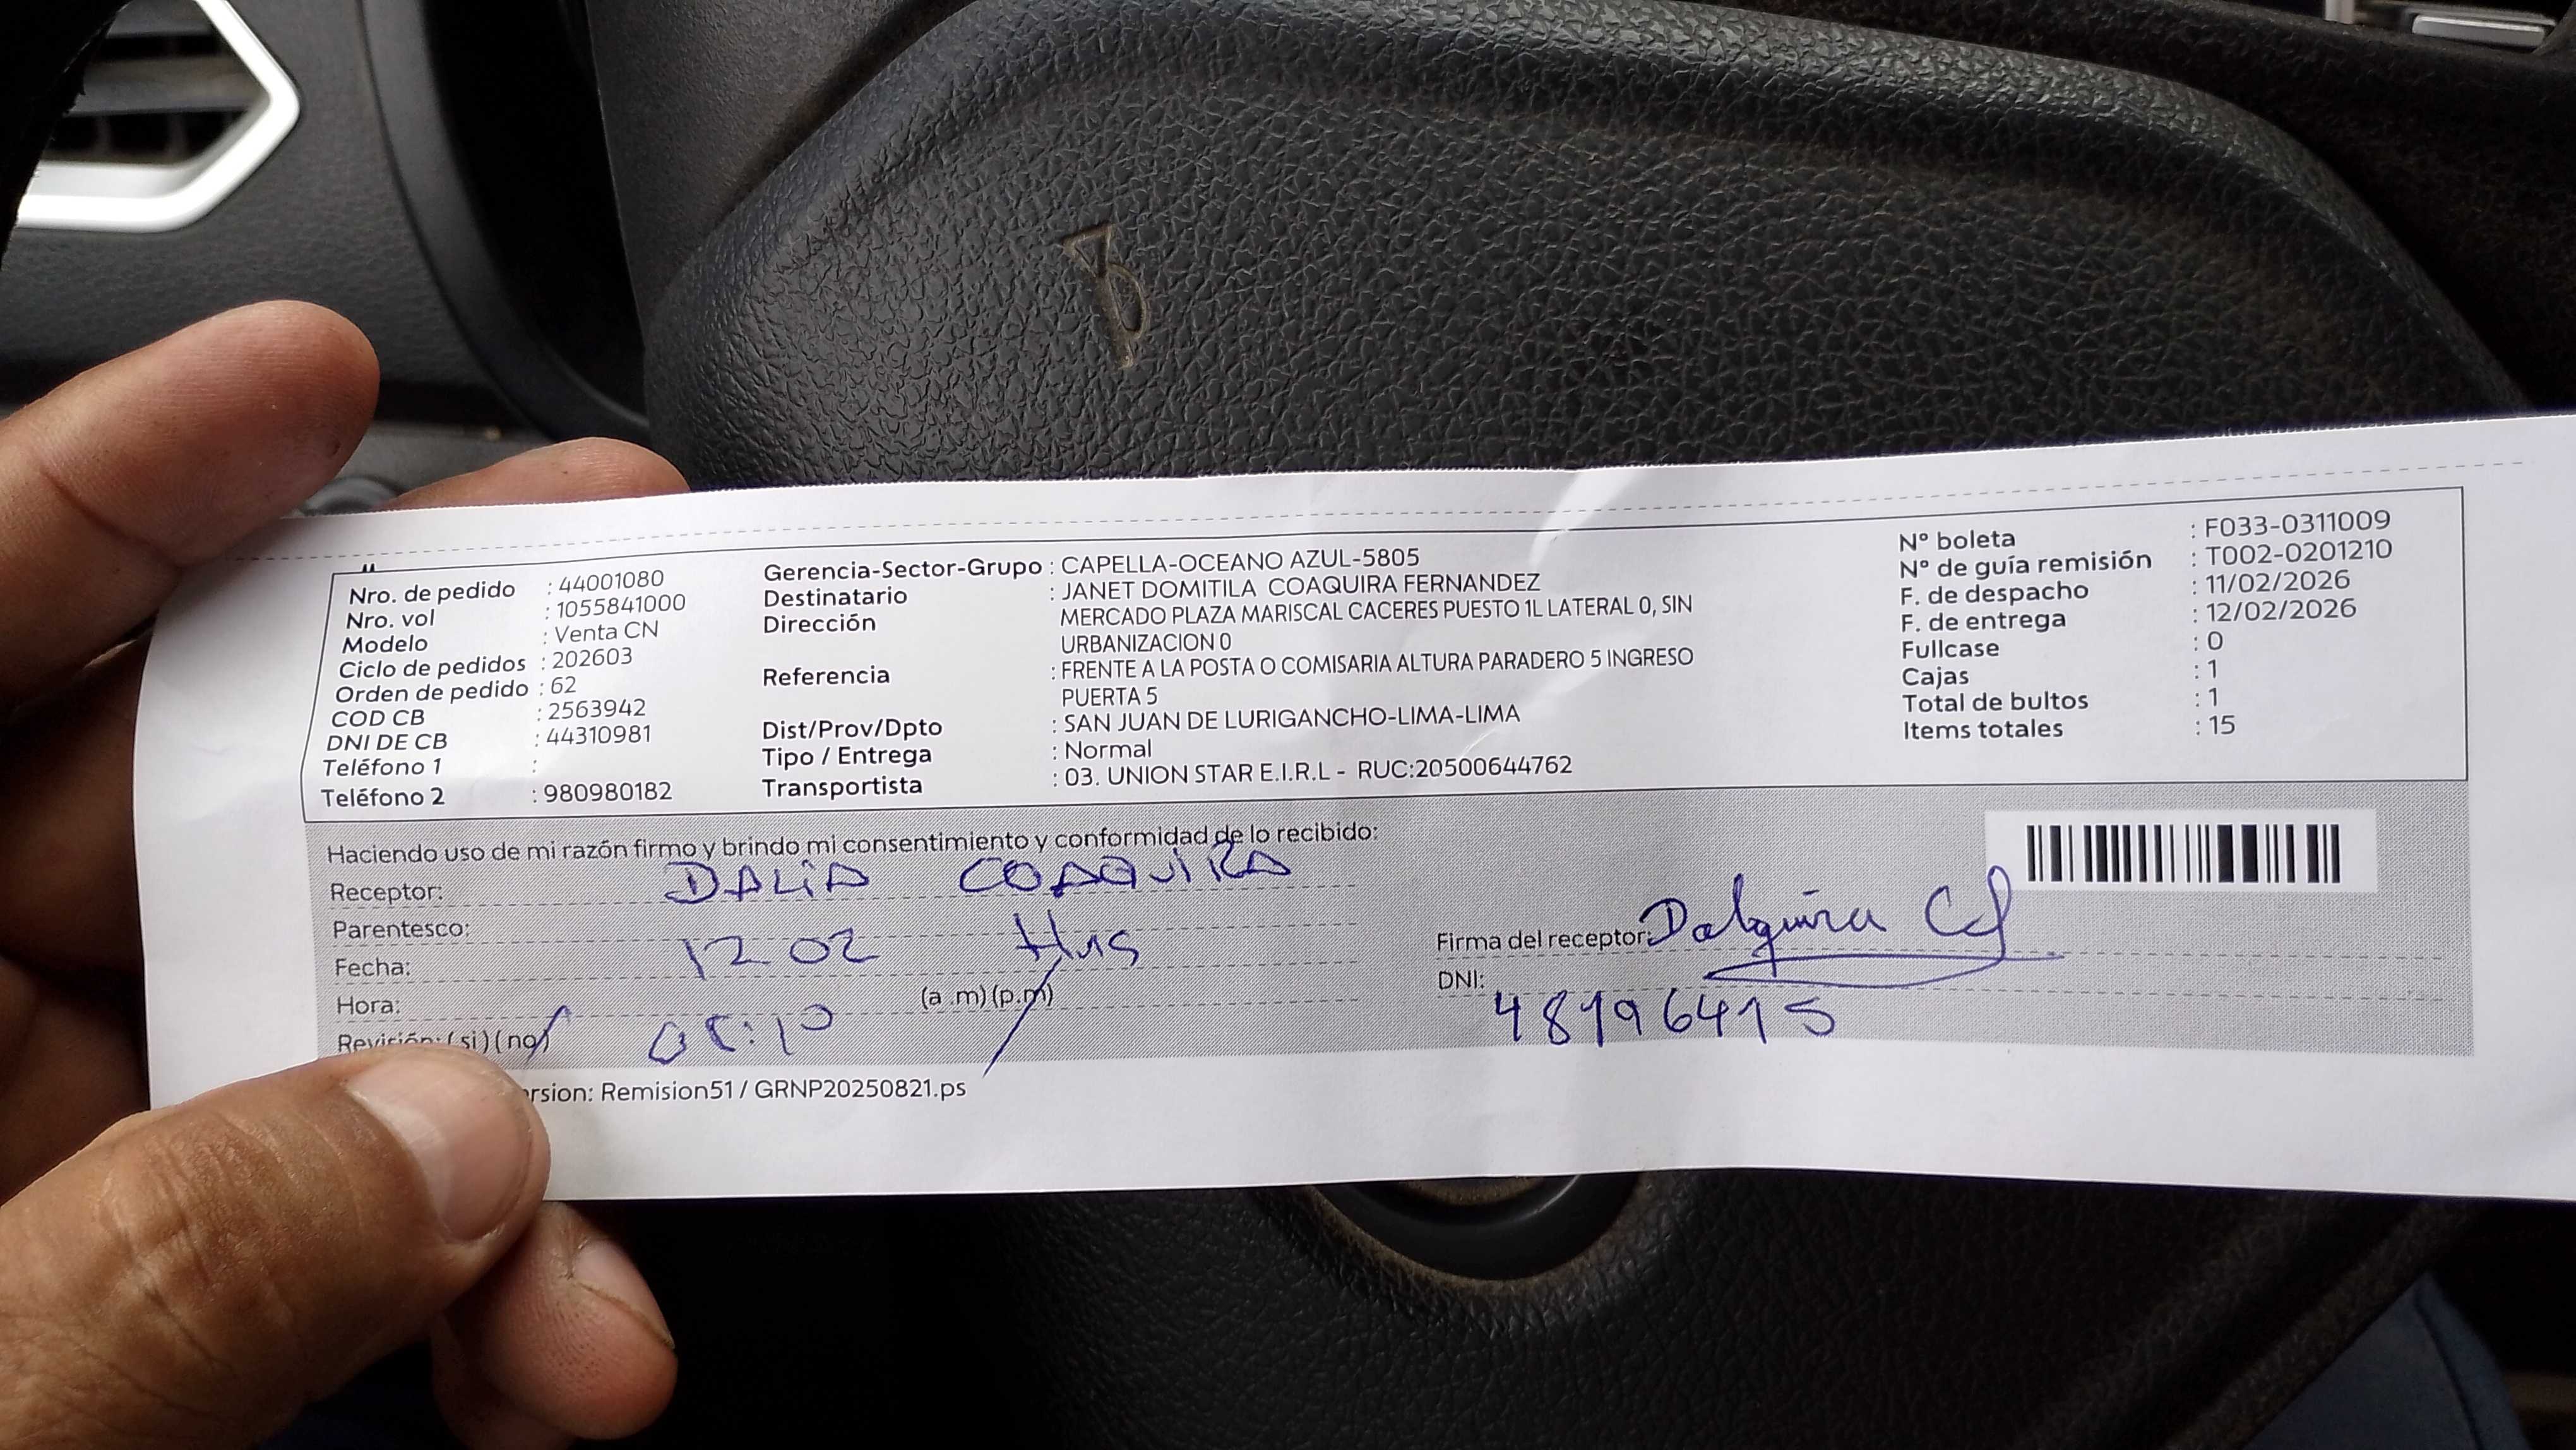 Nro. de pedido : 44001080
Nro. vol : 1055841000
Modelo : Venta CN
Ciclo de pedidos : 202603
Orden de pedido : 62
COD CB : 2563942
DNI DE CB : 44310981
Teléfono 1 :
Teléfono 2 : 980980182
Gerencia-Sector-Grupo : CAPELLA-OCEANO AZUL-5805
Destinatario : JANET DOMITILA COAQUIRA FERNANDEZ
Dirección MERCADO PLAZA MARISCAL CACERES PUESTO 1L LATERAL 0, SIN
URBANIZACION 0
Referencia : FRENTE A LA POSTA O COMISARIA ALTURA PARADERO 5 INGRESO
PUERTA 5
Dist/Prov/Dpto : SAN JUAN DE LURIGANCHO-LIMA-LIMA
Tipo / Entrega : Normal
Transportista : 03. UNION STAR E.I.R.L - RUC:20500644762
N° boleta : F033-0311009
N° de guía remisión : T002-0201210
F. de despacho : 11/02/2026
F. de entrega : 12/02/2026
Fullcase : 0
Cajas : 1
Total de bultos : 1
Items totales : 15
Haciendo uso de mi razón firmo y brindo mi consentimiento y conformidad de lo recibido:
Receptor: DALIA COAQUIRA
Parentesco:
Fecha: 12 02
Hora: (a.m) (p.m)
Revisión: (si) (no)
Firma del receptor:
DNI:
48196415
rsion: Remision51 / GRNP20250821.ps